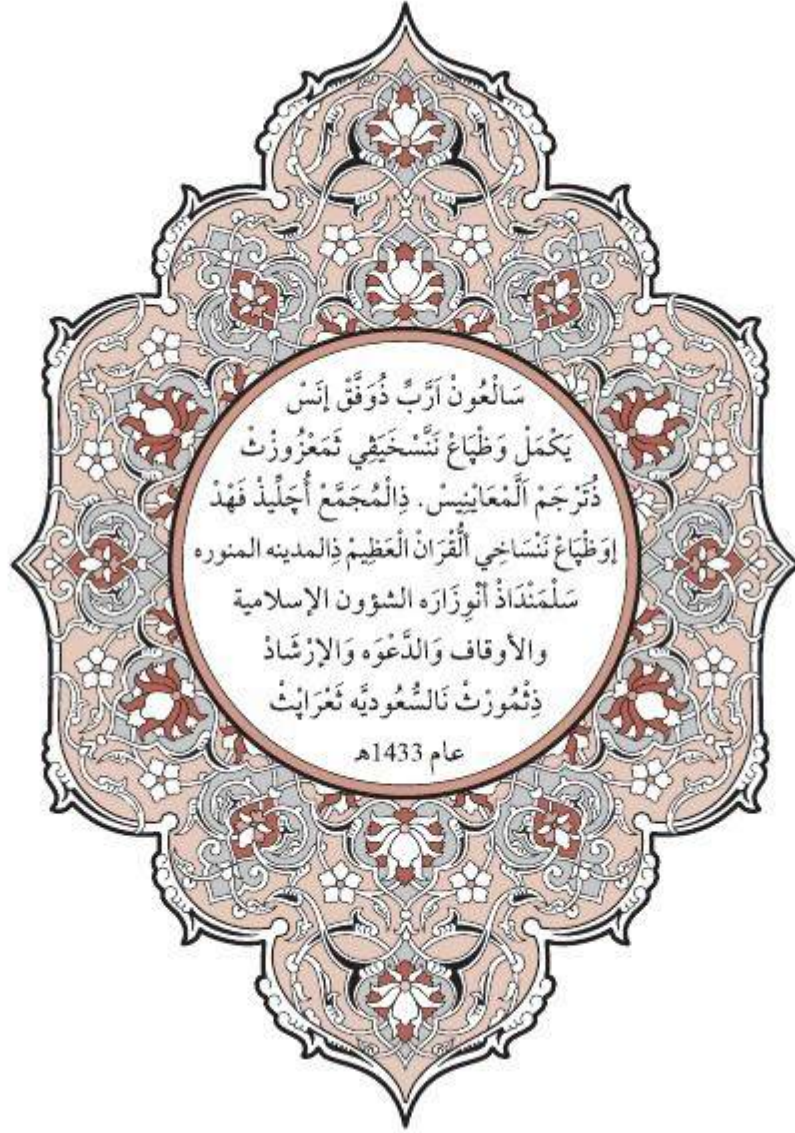 سَالْعُونْ اَرَّبِّ ذُوَفَّقْ إِنَسْ
يَكْمَلْ وَظْپَاعْ نَنَّسْخَيَڤِي ثَمَعْزُوزْثْ
ذُتَرْجَمْ اَلَّمْعَايْنِيسْ. ذِالْمُجَمَّعْ أُچَلِّيذْ فَهْدْ
إِوَظْپَاعْ نَنْسَاخِي اَلْقُرَانْ الْعَظِيمْ ذِالمدينه المنوره
سَلْمَنْدَاذْ اَنْوِزَارَه الشؤون الإسلامية
والأوقاف وَالدَّعْوَه وَالإِرْشَادْ
ذِثْمُورْثْ نَالسُّعُودِيَّه ثَعْرَاپْثْ
عام 1433هـ